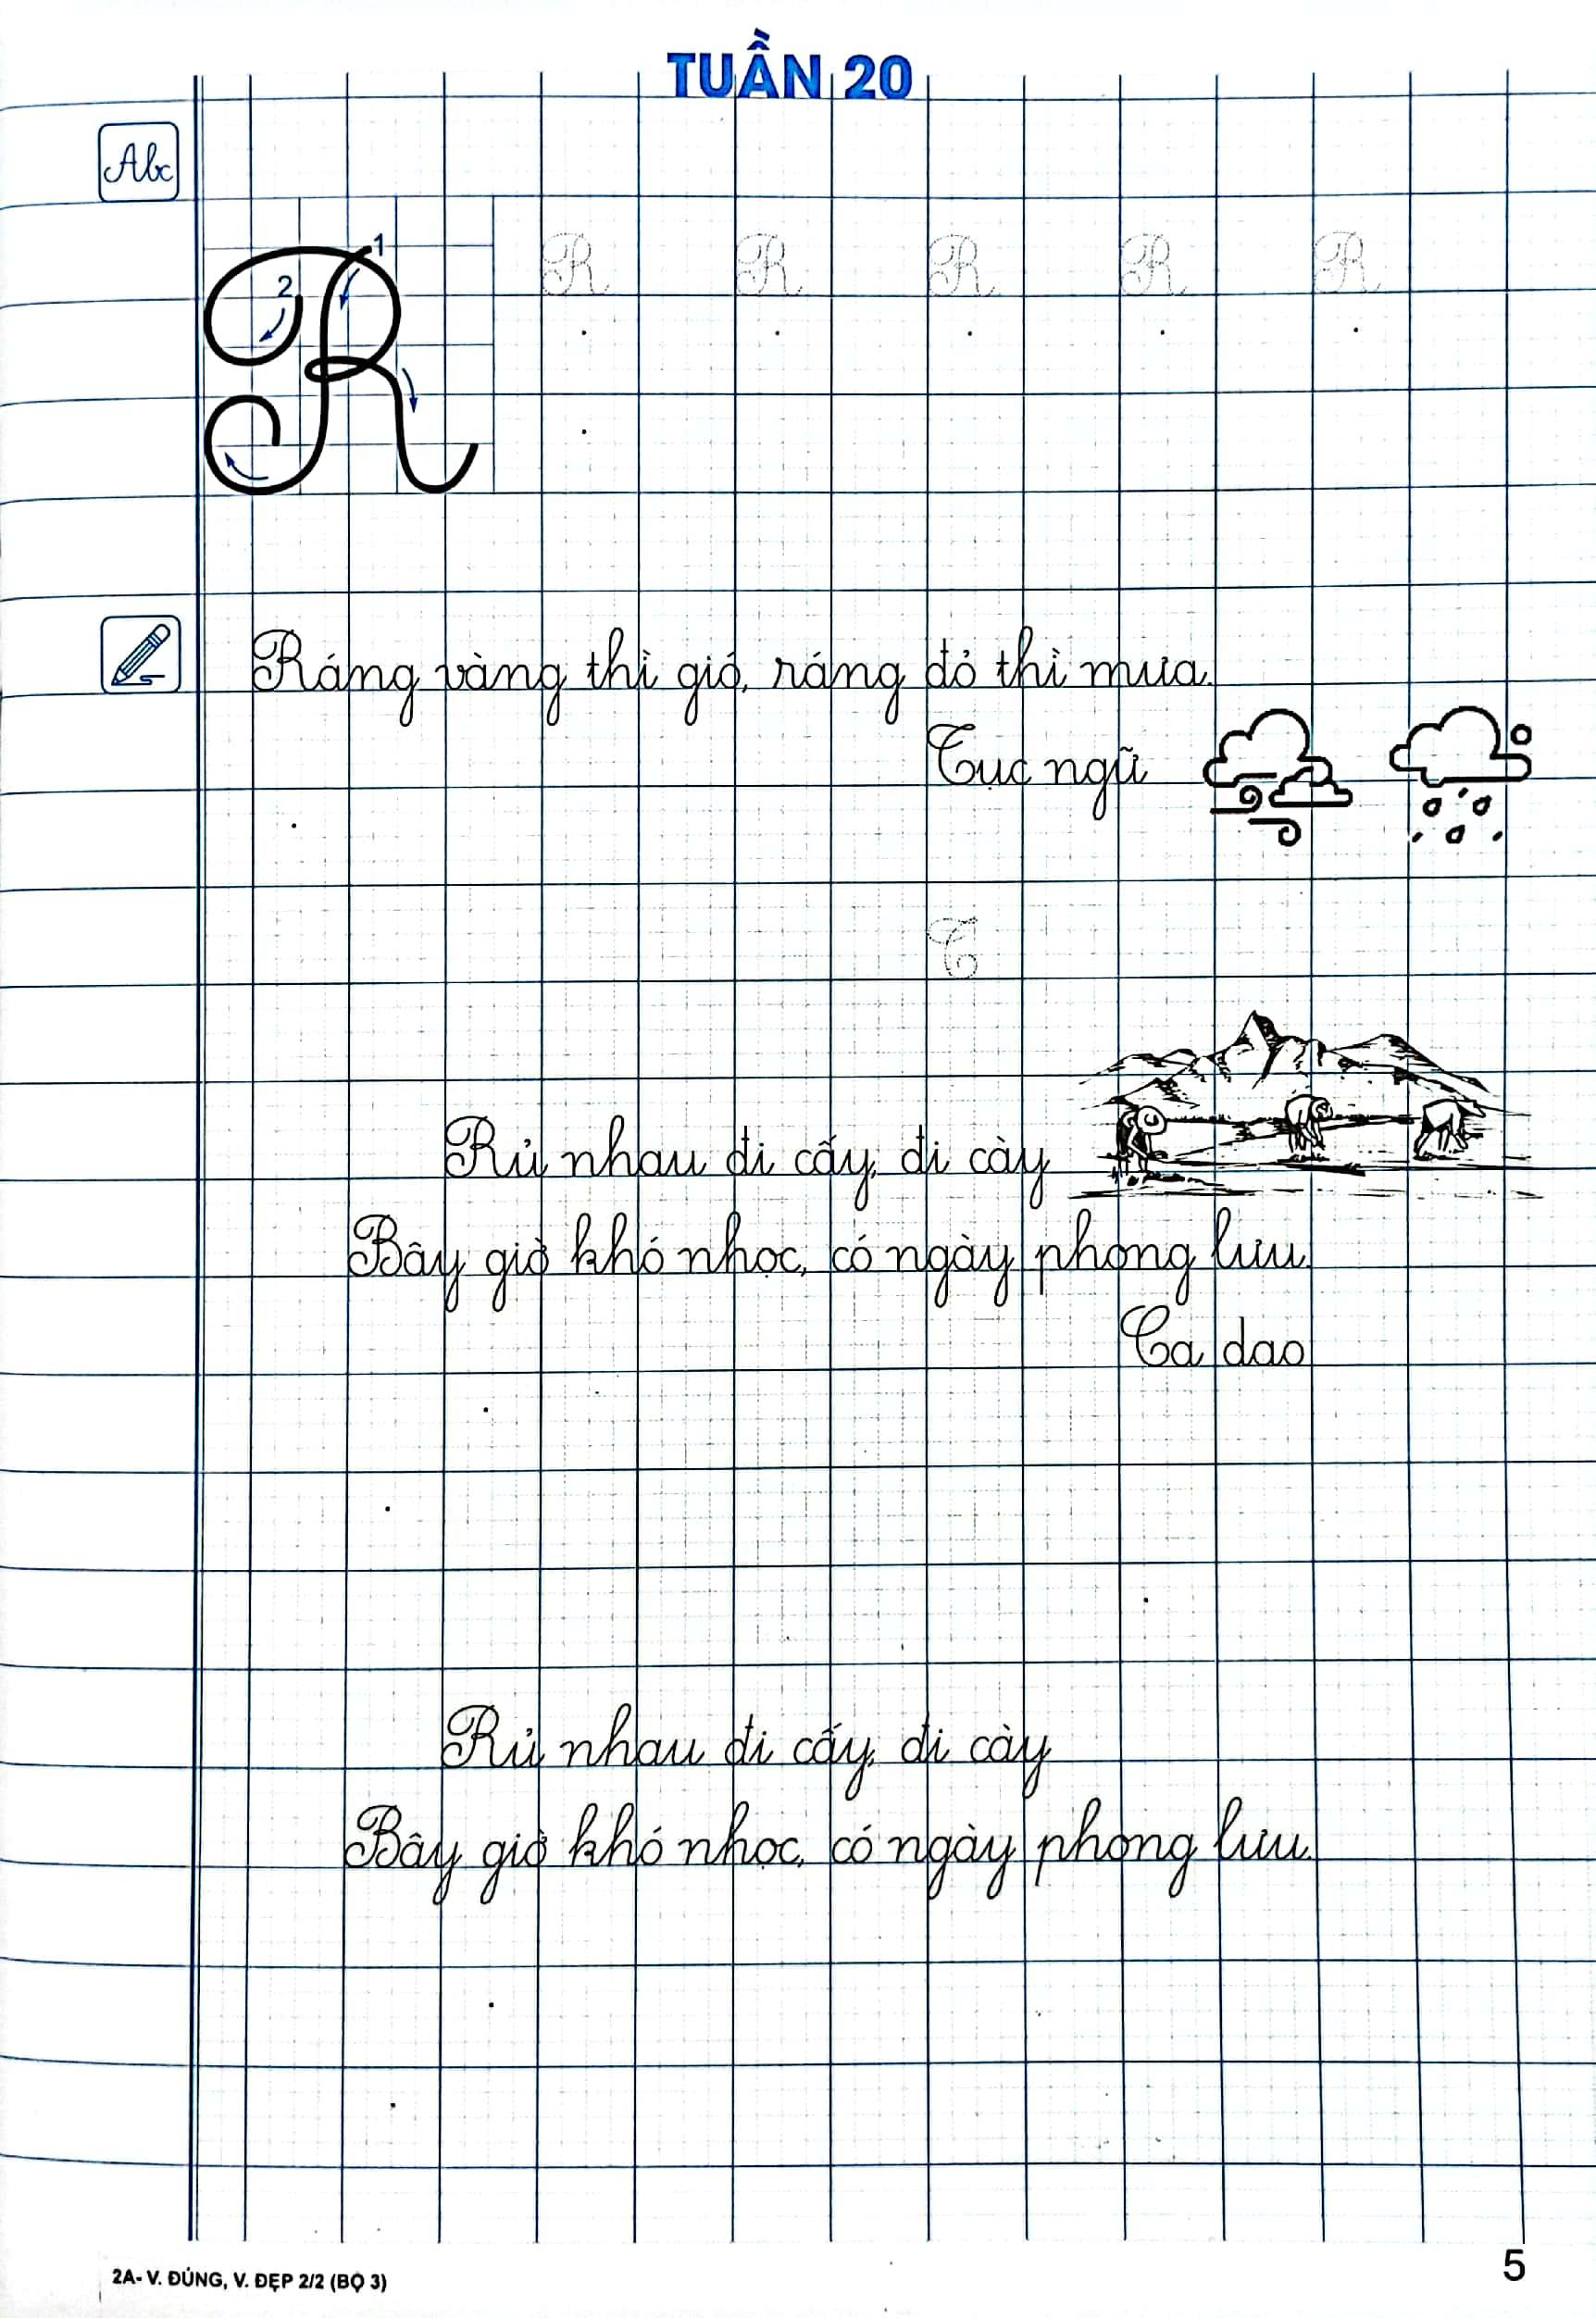 TUẦN 20
Abc
1
2
R R R R R
Ráng vàng thì gió, ráng đỏ thì mưa.
Tục ngữ
T
Rủ nhau đi cấy, đi cày
Bây giờ khó nhọc, có ngày phong lưu.
Ca dao
Rủ nhau đi cấy, đi cày
Bây giờ khó nhọc, có ngày phong lưu.
2A- V. ĐÚNG, V. ĐẸP 2/2 (BỘ 3)
5